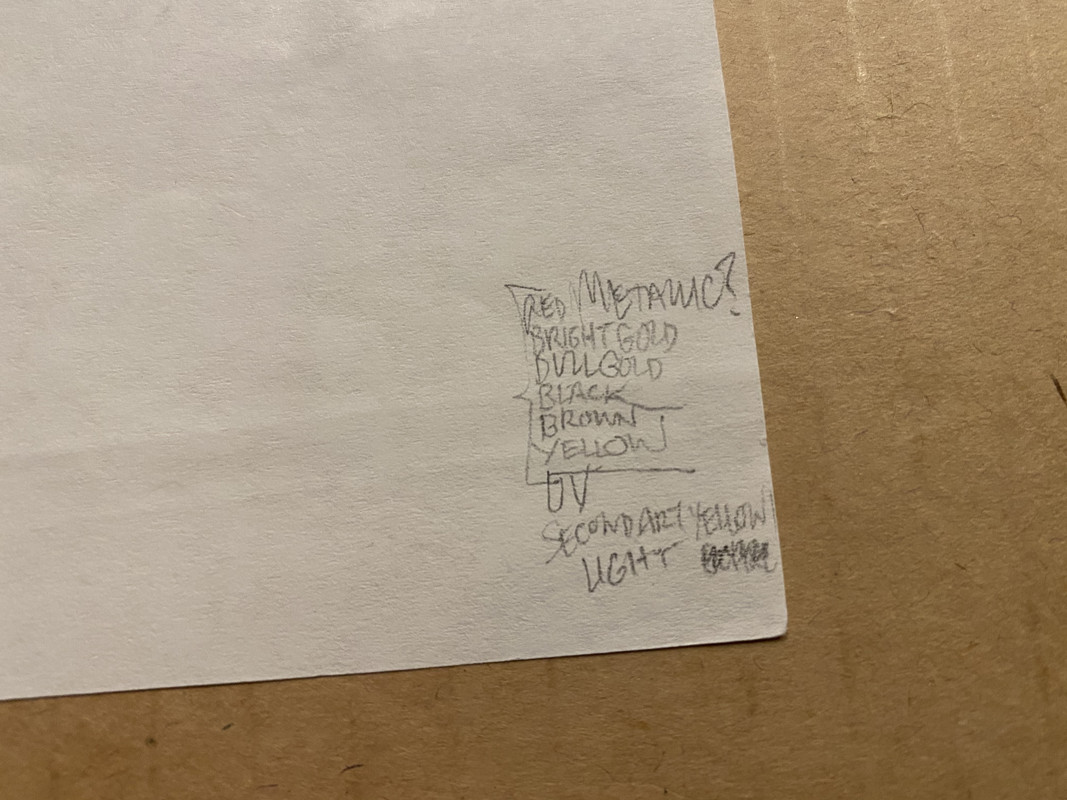 RED METALLIC?
BRIGHT GOLD
DULL GOLD
BLACK
BROWN
YELLOW
UV
SECONDARY YELLOW
LIGHT